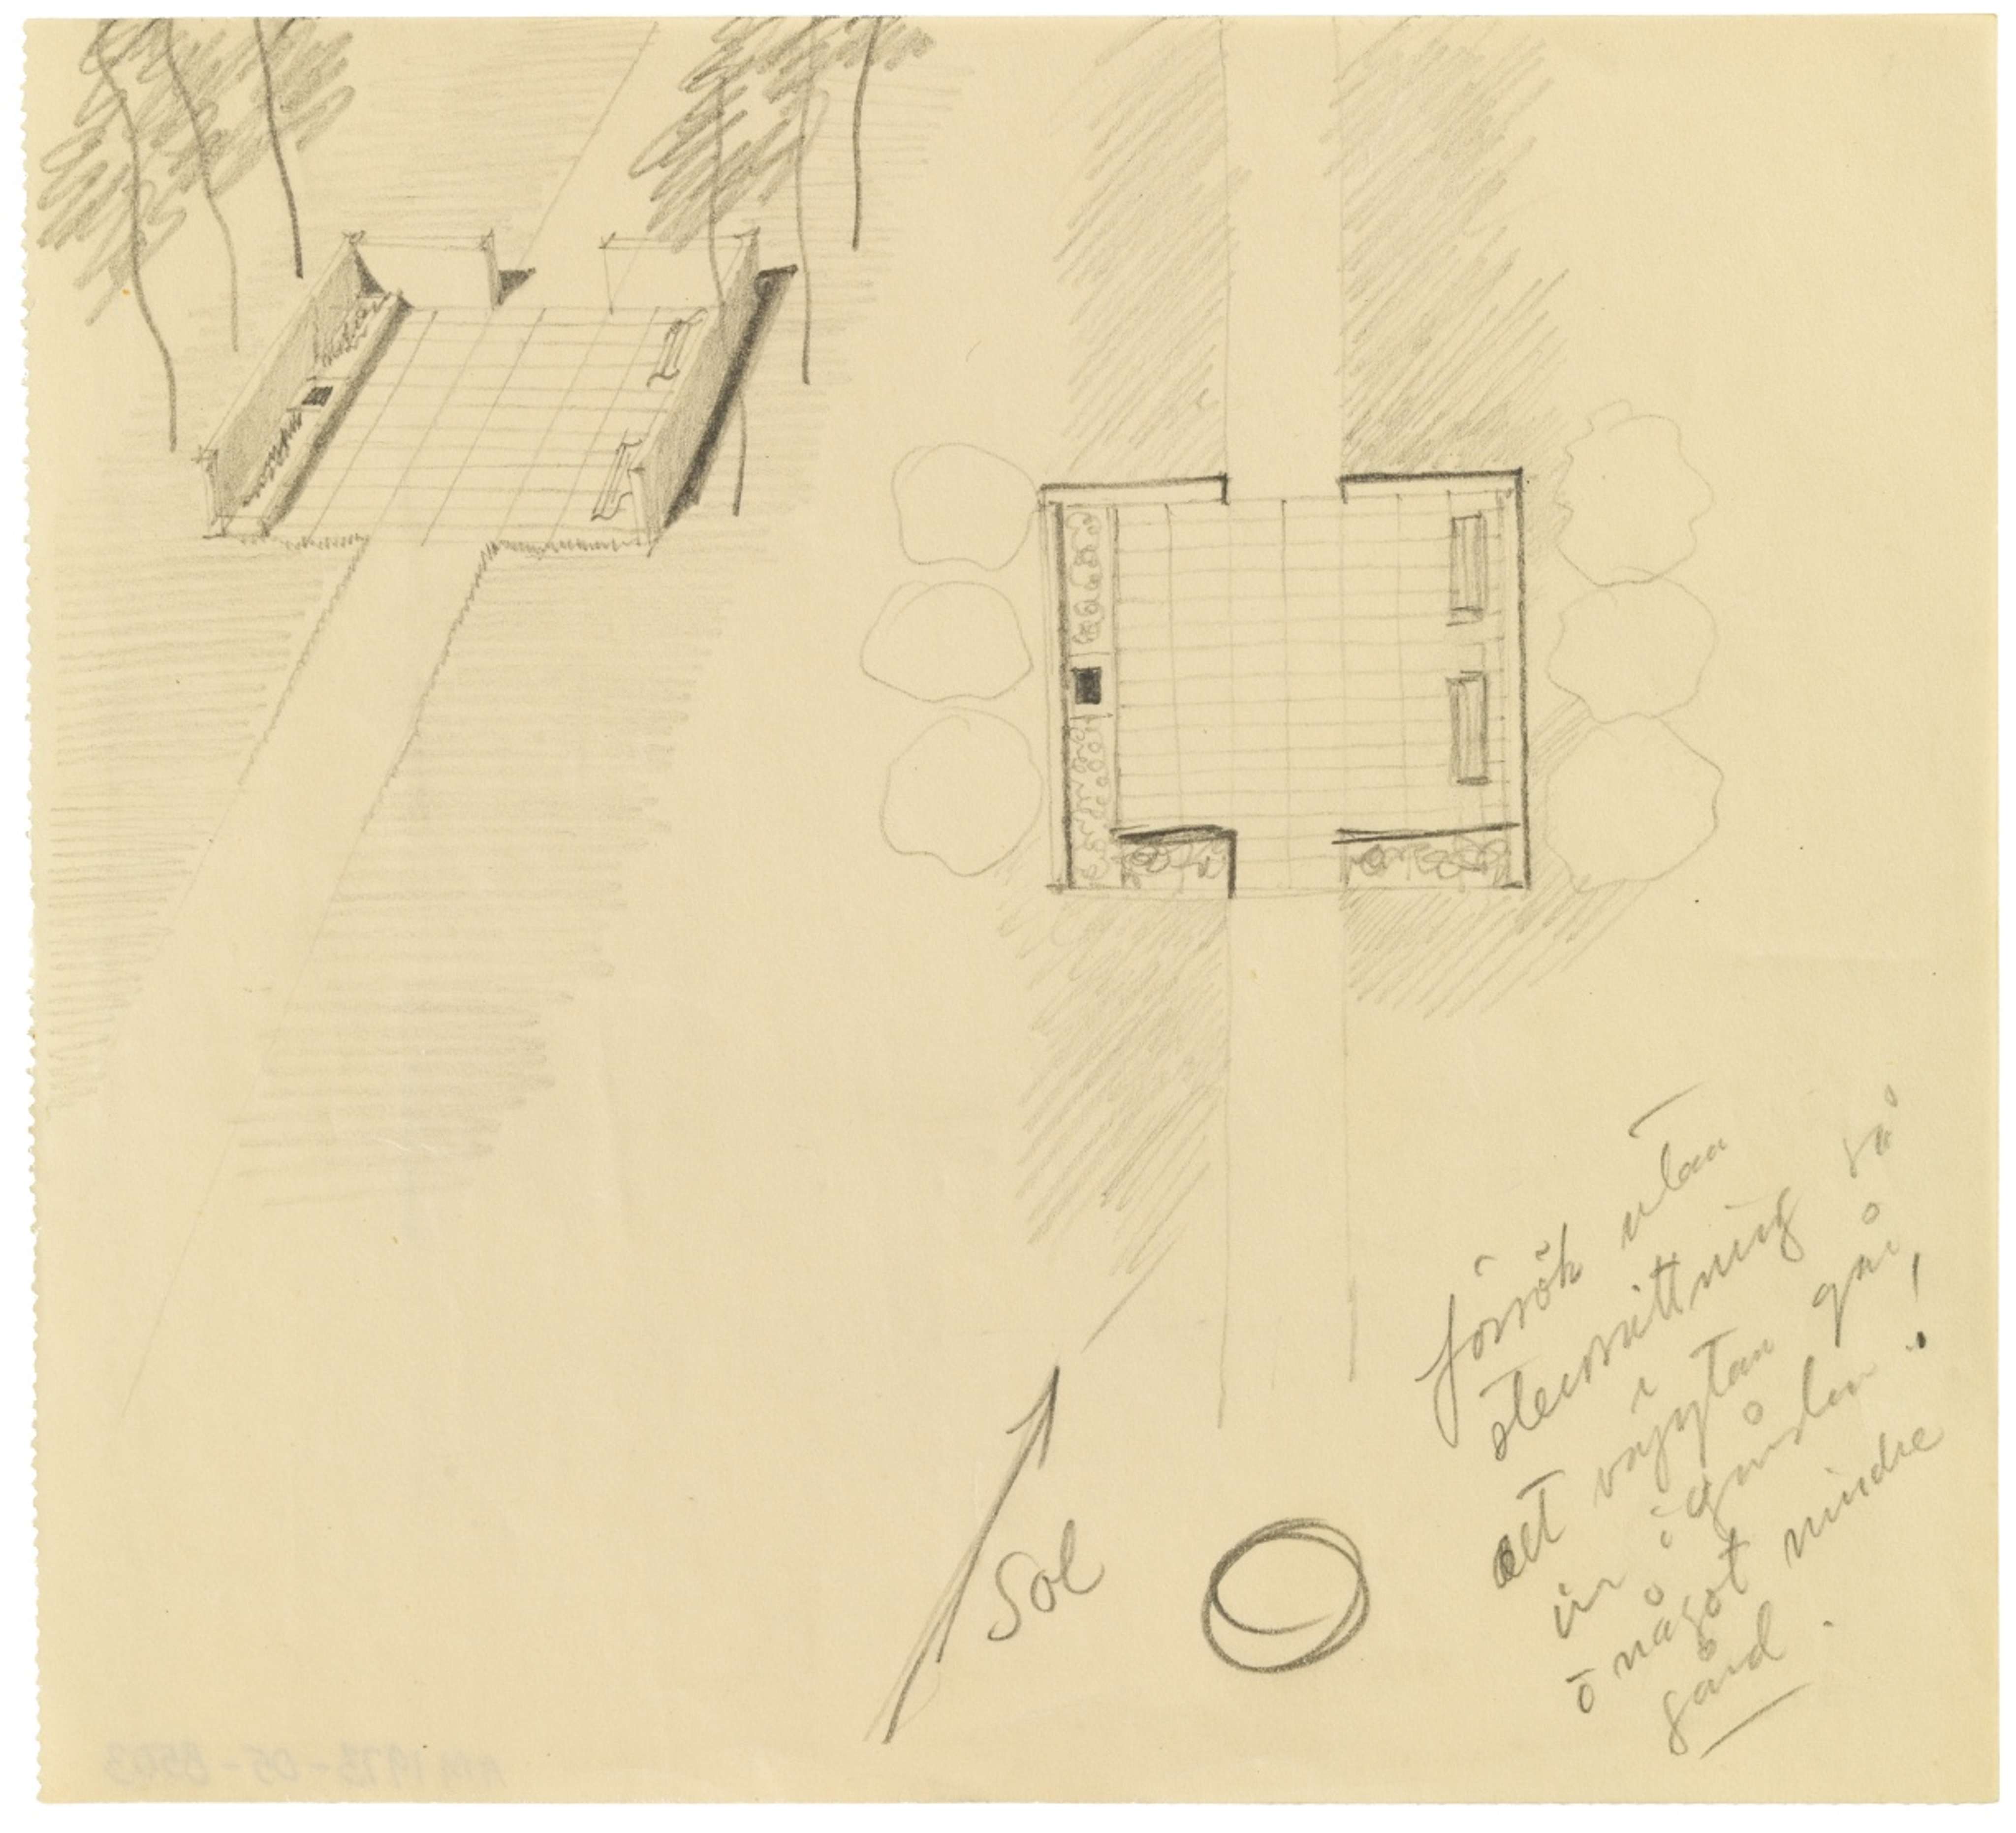 Sol
försök utan
stensättning så
att vägytan går
in i gården !
o något mindre
gård.
AM 1973-05-8503